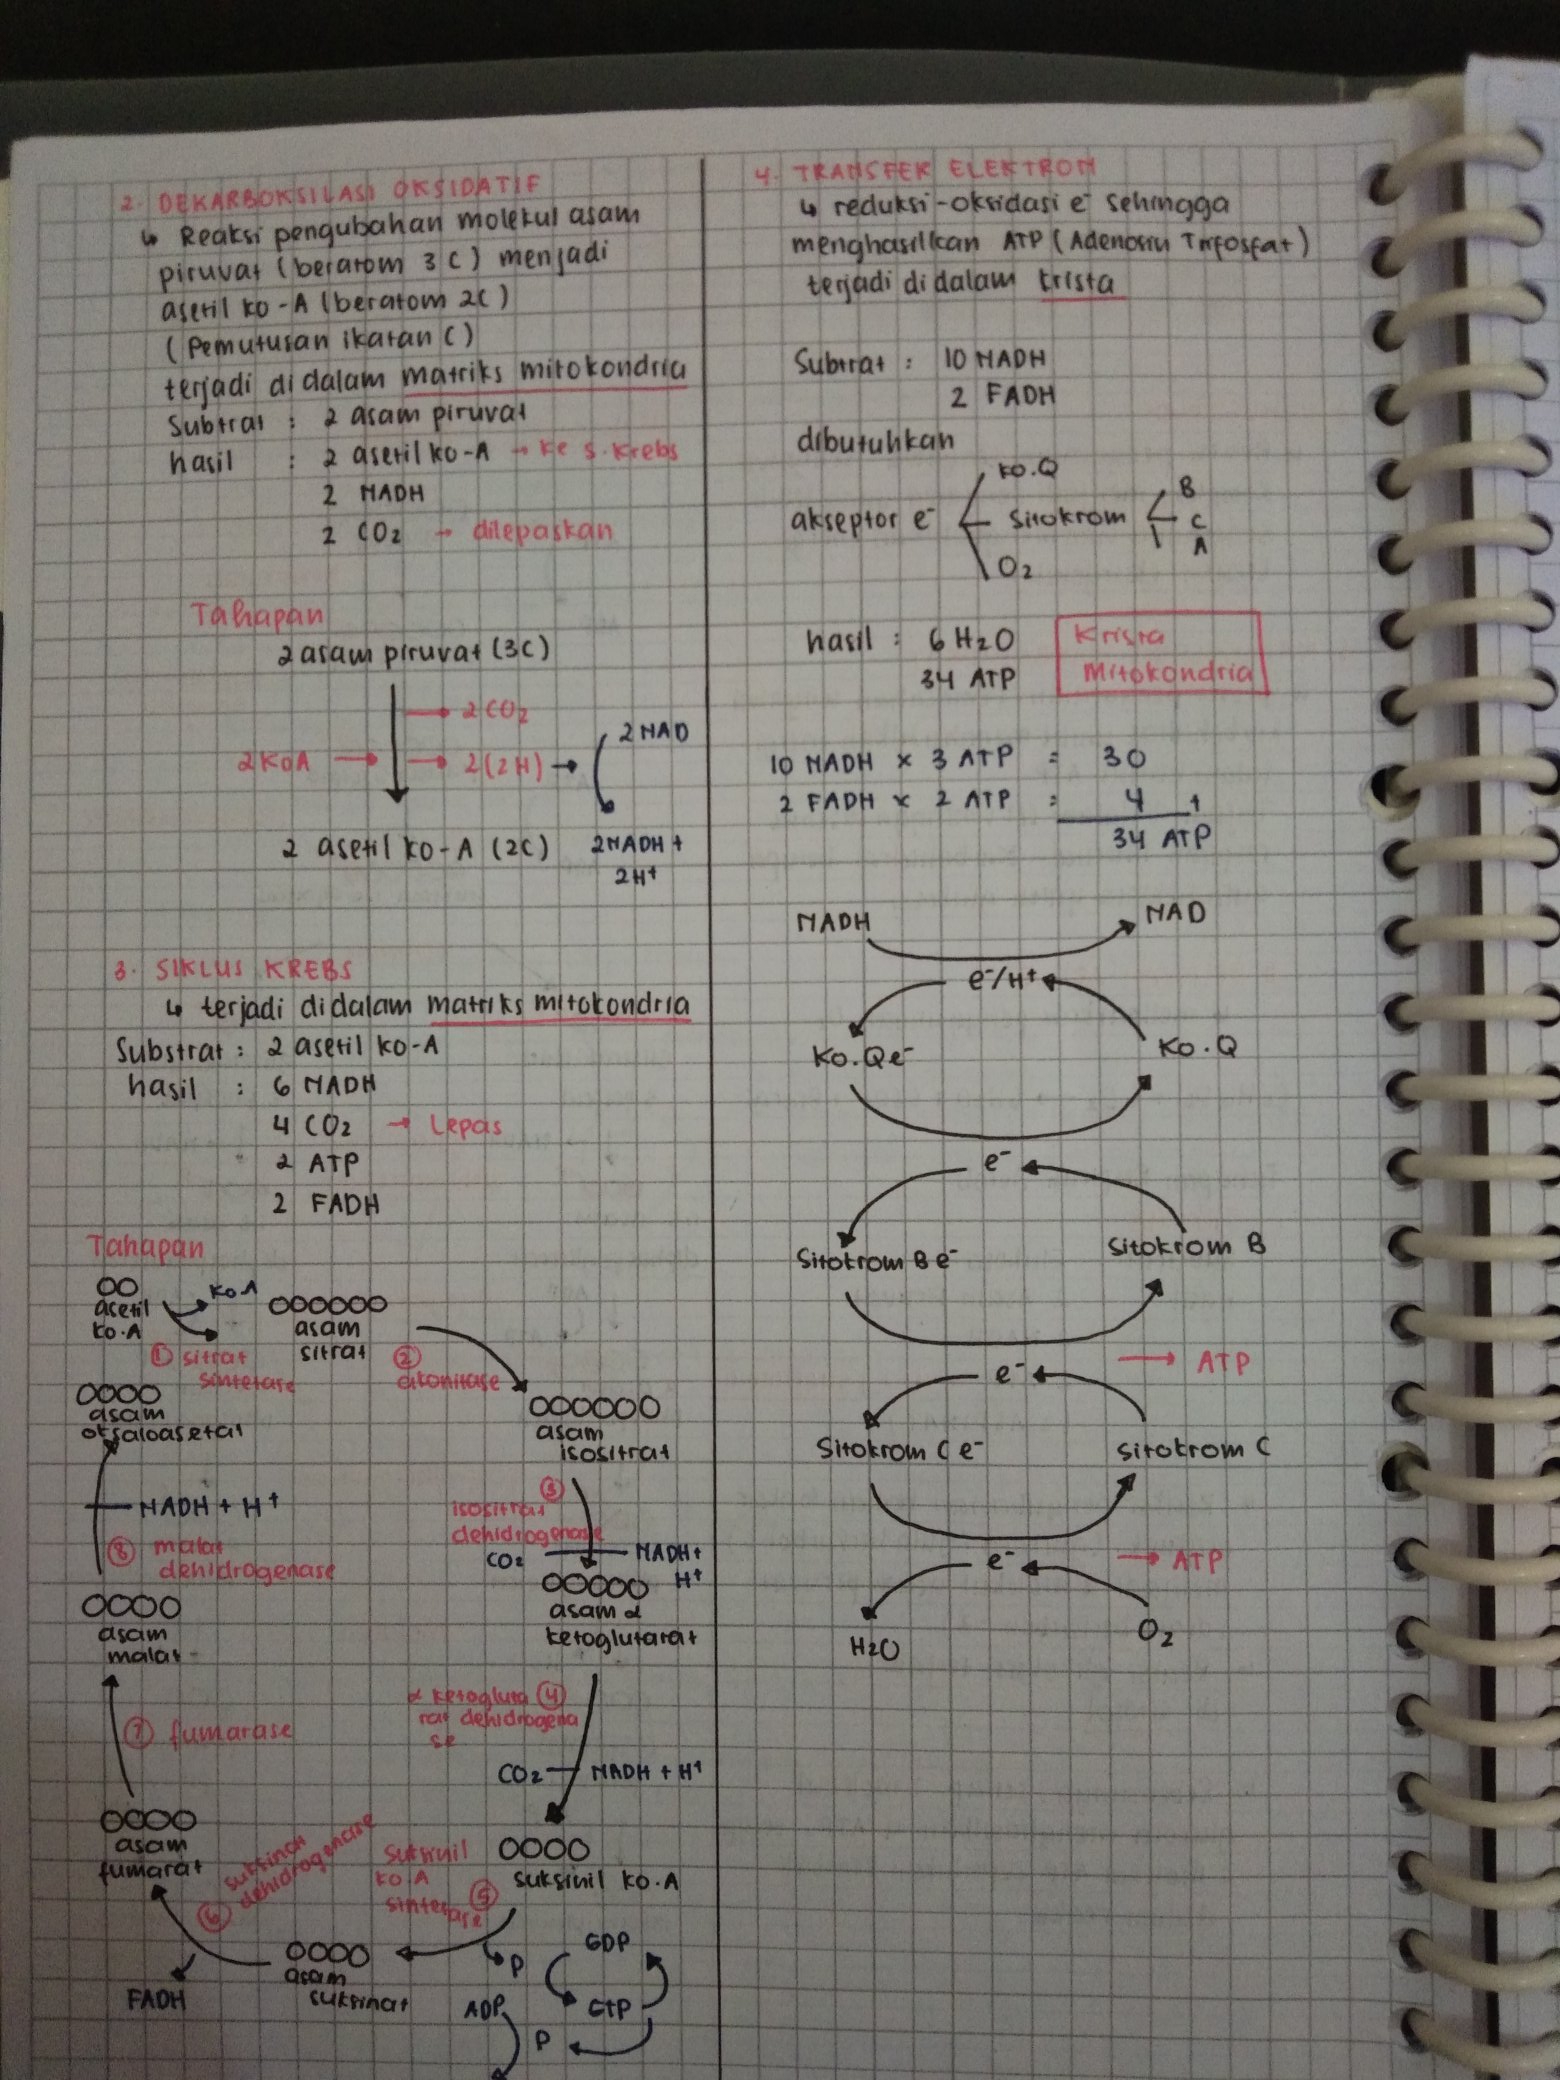 2. DEKARBOKSILASI OKSIDATIF
↳ Reaksi pengubahan molekul asam
piruvat (beratom 3C) menjadi
asetil ko-A (beratom 2C)
(Pemutusan ikatan C)
terjadi didalam matriks mitokondria
Subtrat : 2 asam piruvat
hasil : 2 asetil ko-A → ke s. krebs
2 NADH
2 CO2 → dilepaskan
Tahapan
2 asam piruvat (3C)
→ 2CO2
2 NAD
2KoA → → 2(2H) →
2 asetil ko-A (2C) 2NADH +
2H+
3. SIKLUS KREBS
↳ terjadi didalam matriks mitokondria
Substrat : 2 asetil ko-A
hasil : 6 NADH
4 CO2 → Lepas
2 ATP
2 FADH
Tahapan
asetil
ko.A
ko.A
asam
sitrat
① sitrat
sintetase
② akonitase
asam
isositrat
asam
oksaloasetat
NADH + H+
⑧ malat
dehidrogenase
③
isositrat
dehidrogenase
CO2 NADH +
H+
asam α
ketoglutarat
asam
malat
⑦ fumarase
α ketogluta ④
rat dehidrogena
se
CO2 NADH + H+
asam
fumarat
⑥ suksinat
dehidrogenase
suksinil
ko A
sintetase ⑤
suksinil ko.A
asam
suksinat
FADH
P
GDP
GTP
ADP
P
4. TRANSFER ELEKTRON
↳ reduksi-oksidasi e- sehingga
menghasilkan ATP (Adenosin Trifosfat)
terjadi didalam krista
Subtrat : 10 NADH
2 FADH
dibutuhkan
ko.Q
akseptor e- sitokrom
B
C
A
O2
hasil : 6 H2O
34 ATP
Krista
Mitokondria
10 NADH x 3 ATP = 30
2 FADH x 2 ATP = 4 +
34 ATP
NADH NAD
e-/H+
Ko.Qe- Ko.Q
e-
Sitokrom B e- Sitokrom B
e- → ATP
Sitokrom C e- Sitokrom C
e- → ATP
H2O O2